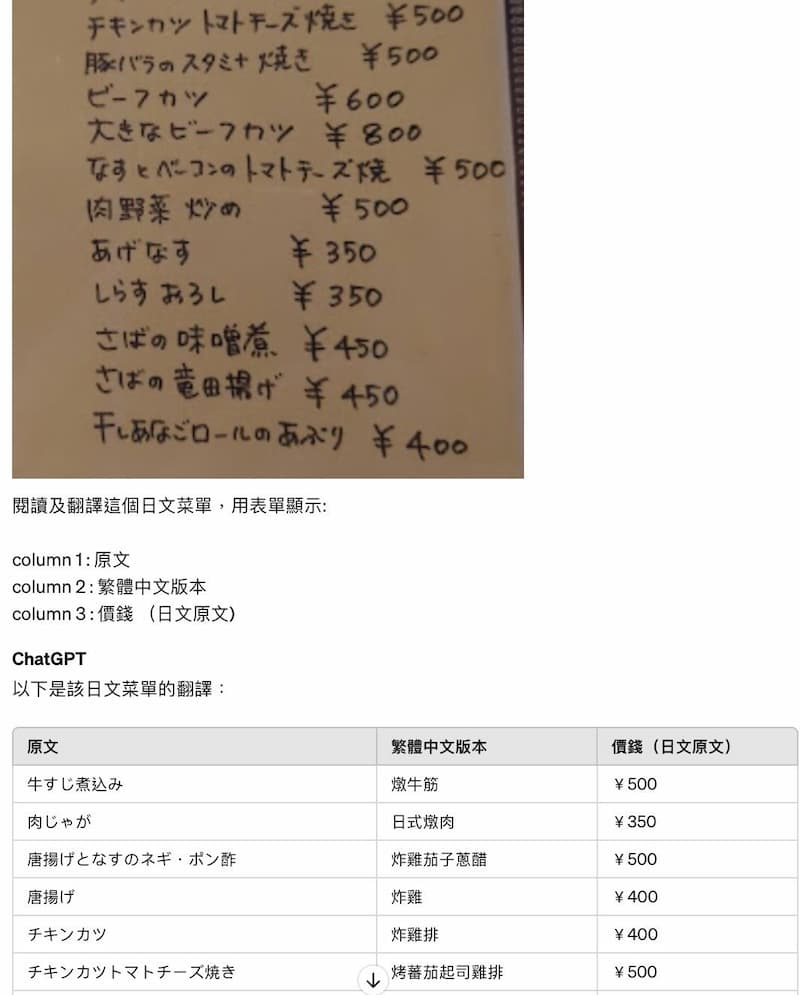 チキンカツトマトチーズ焼き ¥500
豚バラのスタミナ焼き ¥500
ビーフカツ ¥600
大きなビーフカツ ¥800
なすとベーコンのトマトチーズ焼 ¥500
肉野菜炒め ¥500
あげなす ¥350
しらすおろし ¥350
さばの味噌煮 ¥450
さばの竜田揚げ ¥450
干しあなごロールのあぶり ¥400
閱讀及翻譯這個日文菜單,用表單顯示:
column 1: 原文
column 2: 繁體中文版本
column 3: 價錢 (日文原文)
ChatGPT
以下是該日文菜單的翻譯:
原文 繁體中文版本 價錢(日文原文)
牛すじ煮込み 燉牛筋 ¥500
肉じゃが 日式燉肉 ¥350
唐揚げとなすのネギ・ポン酢 炸雞茄子蔥醋 ¥500
唐揚げ 炸雞 ¥400
チキンカツ 炸雞排 ¥400
チキンカツトマトチーズ焼き 烤蕃茄起司雞排 ¥500